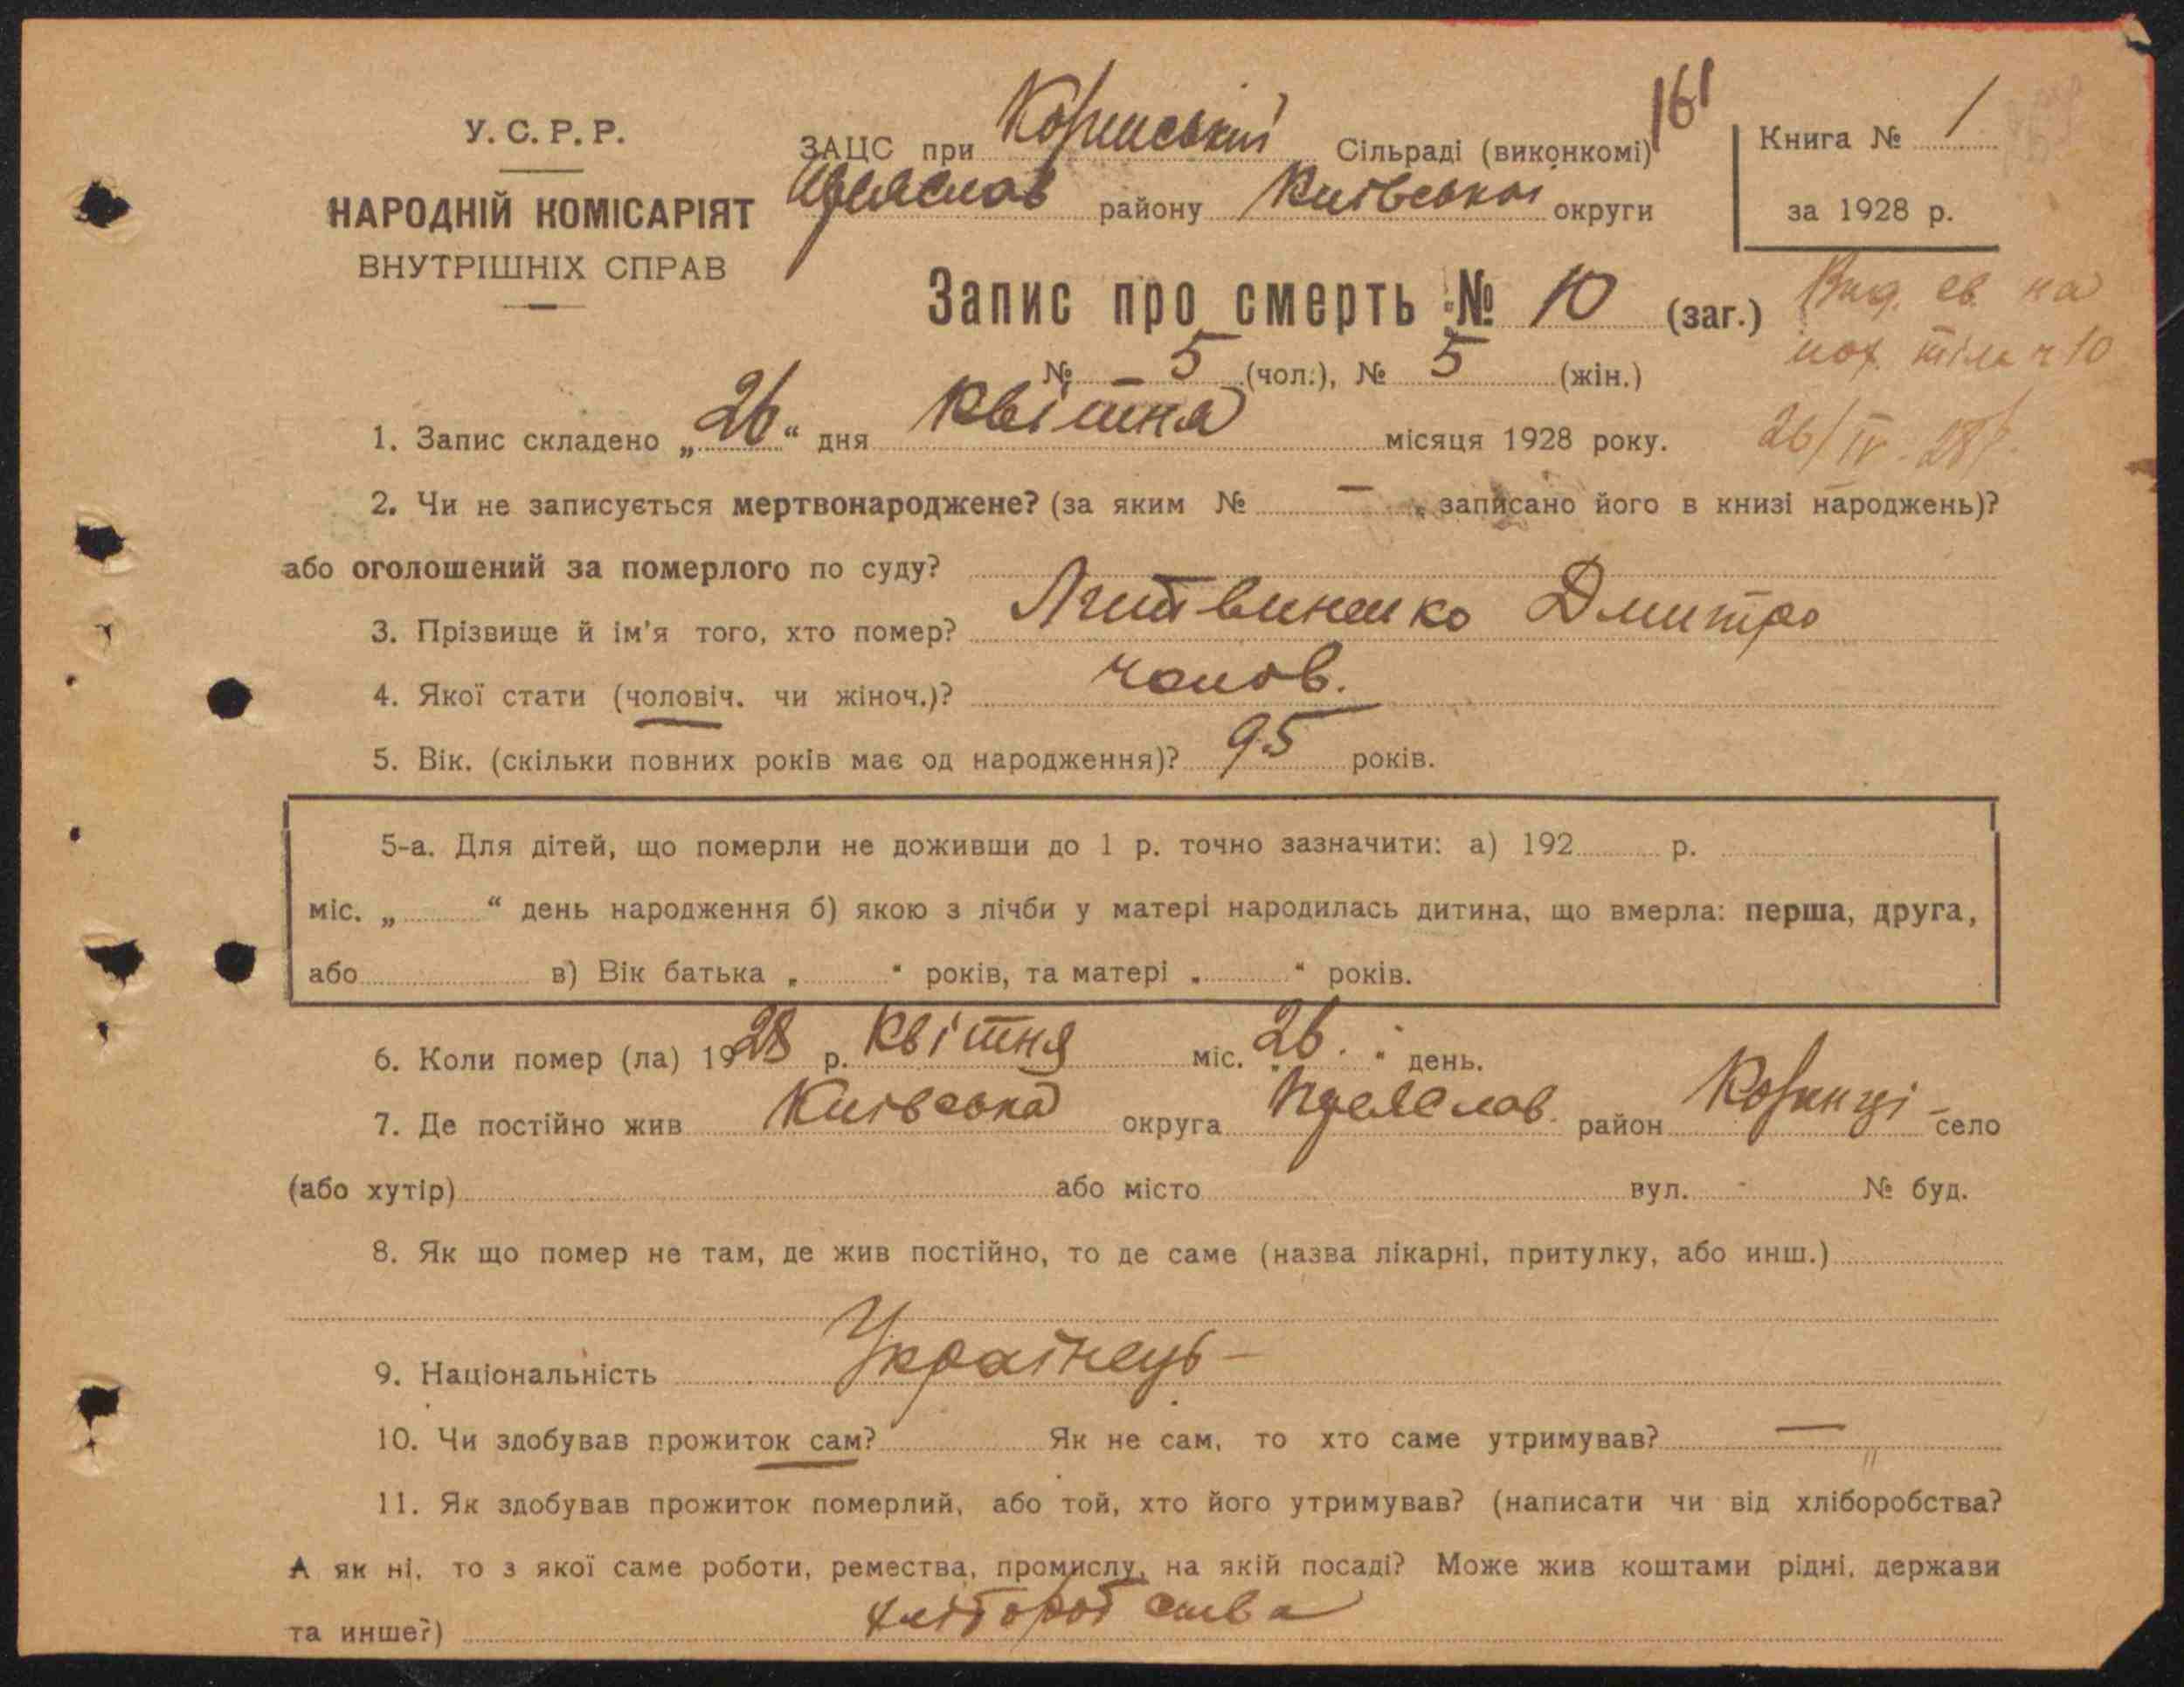 161
У. С. Р. Р.
НАРОДНІЙ КОМІСАРІЯТ
ВНУТРІШНІХ СПРАВ
ЗАЦС при Сільраді (виконкомі)
району Київської округи
Книга № 1
за 1928 р.
Запис про смерть № 10 (заг.)
№ 5 (чол.), № 5 (жін.)
Вид. св. на
пох. тіла ч 10
26/IV. 28 р.
1. Запис складено „26“ дня квітня місяця 1928 року.
2. Чи не записується мертвонароджене? (за яким № — записано його в книзі народжень)?
або оголошений за померлого по суду?
3. Прізвище й ім'я того, хто помер? Литвиненко Дмитро
4. Якої стати (чоловіч. чи жіноч.)? чолов.
5. Вік. (скільки повних років має од народження)? 95 років.
5-а. Для дітей, що померли не доживши до 1 р. точно зазначити: а) 192 р.
міс. „ “ день народження б) якою з лічби у матері народилась дитина, що вмерла: перша, друга,
або в) Вік батька „ “ років, та матері „ “ років.
6. Коли помер (ла) 1928 р. квітня міс. „26.“ день.
7. Де постійно жив Київська округа Переяслав. район село
(або хутір) або місто вул. - № буд.
8. Як що помер не там, де жив постійно, то де саме (назва лікарні, притулку, або инш.)
9. Національність Українець –
10. Чи здобував прожиток сам? Як не сам, то хто саме утримував? —
11. Як здобував прожиток померлий, або той, хто його утримував? (написати чи від хліборобства?
А як ні, то з якої саме роботи, ремества, промислу, на якій посаді? Може жив коштами рідні, держави
та инше?) хліборобства